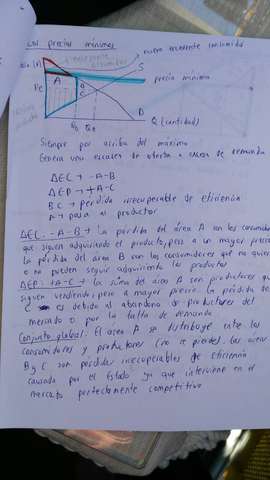 Los precios mínimos
nuevo excedente consumidor
excedente
consumidor
S
A
B
C
precio mínimo
Pe
D
Qe
Q (cantidad)
Siempre por arriba del máximo
Genera una escases de oferta + exceso de demanda
ΔEC → -A-B
ΔEP → +A-C
BC → perdida irrecuperable de eficiencia
A → pasa al productor
ΔEC: -A-B → la pérdida del área A son los consumidores
que siguen adquiriendo el producto, pero a un mayor precio
la pérdida del área B son los consumidores que no quieren
o no pueden seguir adquiriendo los productos
ΔEP: +A-C → la suma del área A son productores que
siguen vendiendo, pero a mayor precio. La pérdida de
C es debido al abandono de productores del
mercado o por la falta de demanda
Conjunto global: El área A se distribuye entre los
consumidores y productores (no se pierde), las áreas
B y C son pérdidas irrecuperables de eficiencia
causada por el Estado ya que interviene en el
mercado perfectamente competitivo